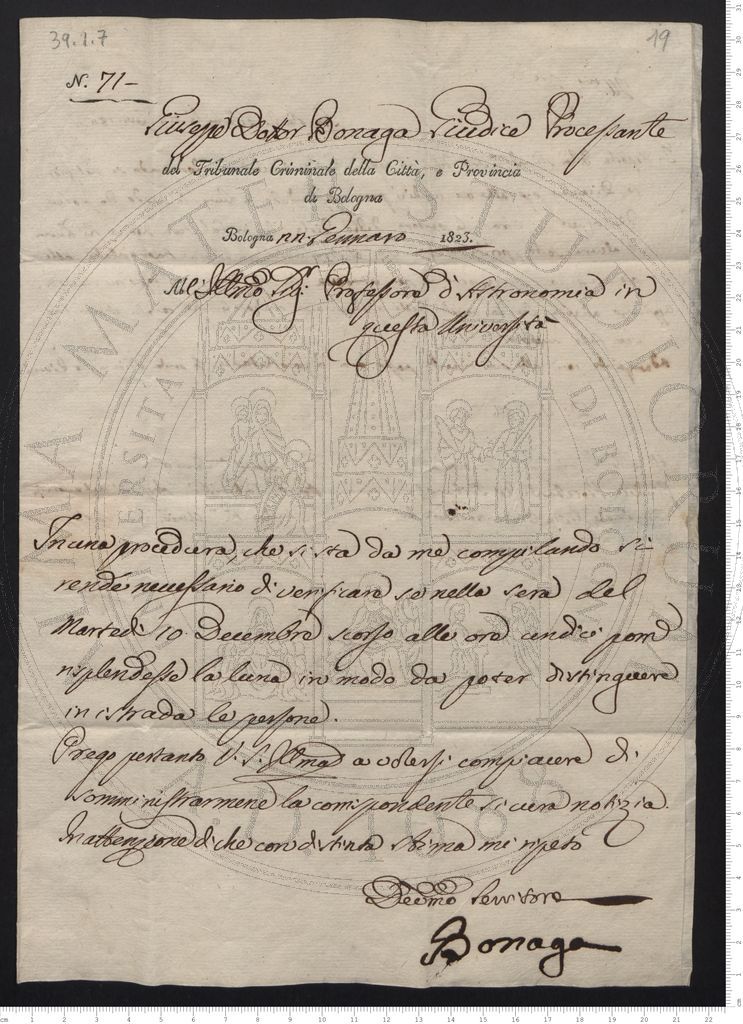 39.1.7
19
N. 71-
Giuseppe Dottor Bonaga Giudice Processante
del Tribunale Criminale della Città, e Provincia
di Bologna
Bologna Gennaro 1823.
All'Illmo Sig. Professore d'Astronomia in
questa Università
In una procedura, che si sta da me compilando si
rende necessario di verificare se nella sera del
Martedì 10 Decembre scorso alle ore undici pom
risplendesse la luna in modo da poter distinguere
in istrada le persone.
Prego pertanto V. S. Illma a volersi compiacere di
somministrarmene la corrispondente sicura notizia.
In attenzione di che con distinta stima mi ripeto
Devmo Servitore
Bonaga
ALMA MATER STUDIORUM
UNIVERSITÀ DI BOLOGNA
A.D. 1088